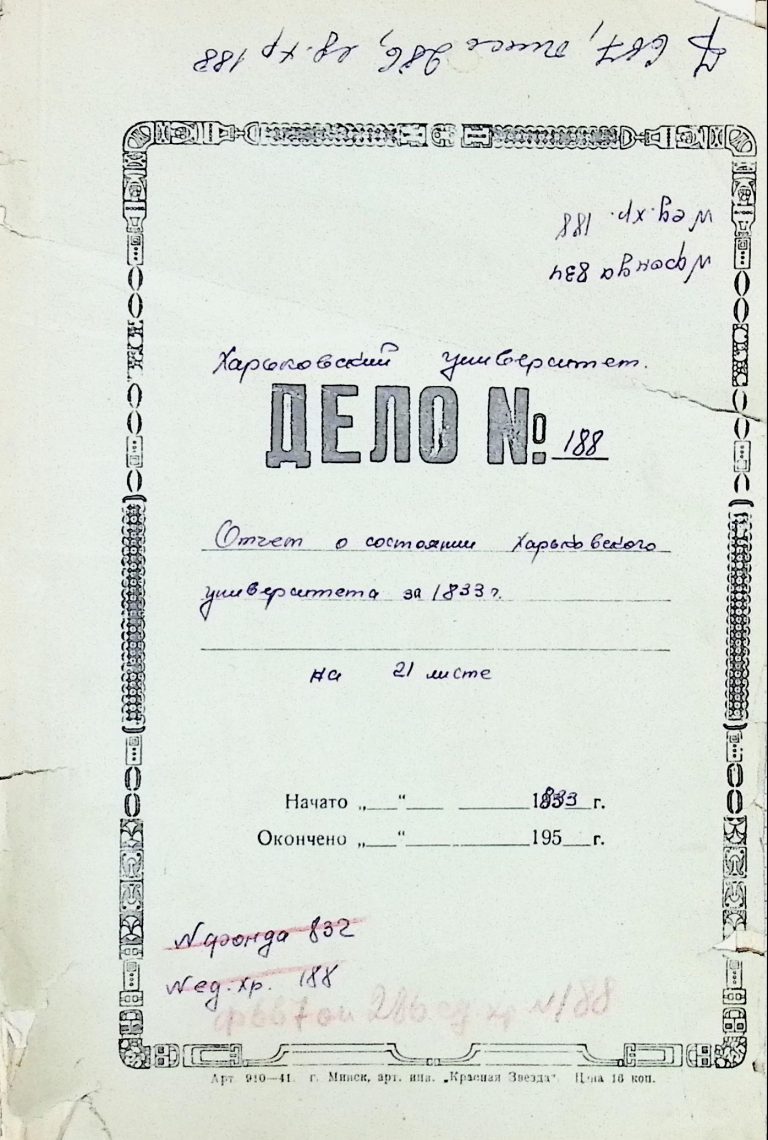 Ф 667, опись 286, ед. хр 188
№ ед. хр. 188
№ фонда 834
Харьковский университет.
ДЕЛО №188
Отчет о состоянии Харьковского
университета за 1833 г.
на 21 листе
Начато „__“ ____ ______1833 г.
Окончено „__“ ____ ______195__г.
№ фонда 832
№ ед. хр. 188
ф 667 оп 286 ед хр №188
Арт. 910—41. г. Минск, арт. инв. „Красная Звезда“. Цена 16 коп.